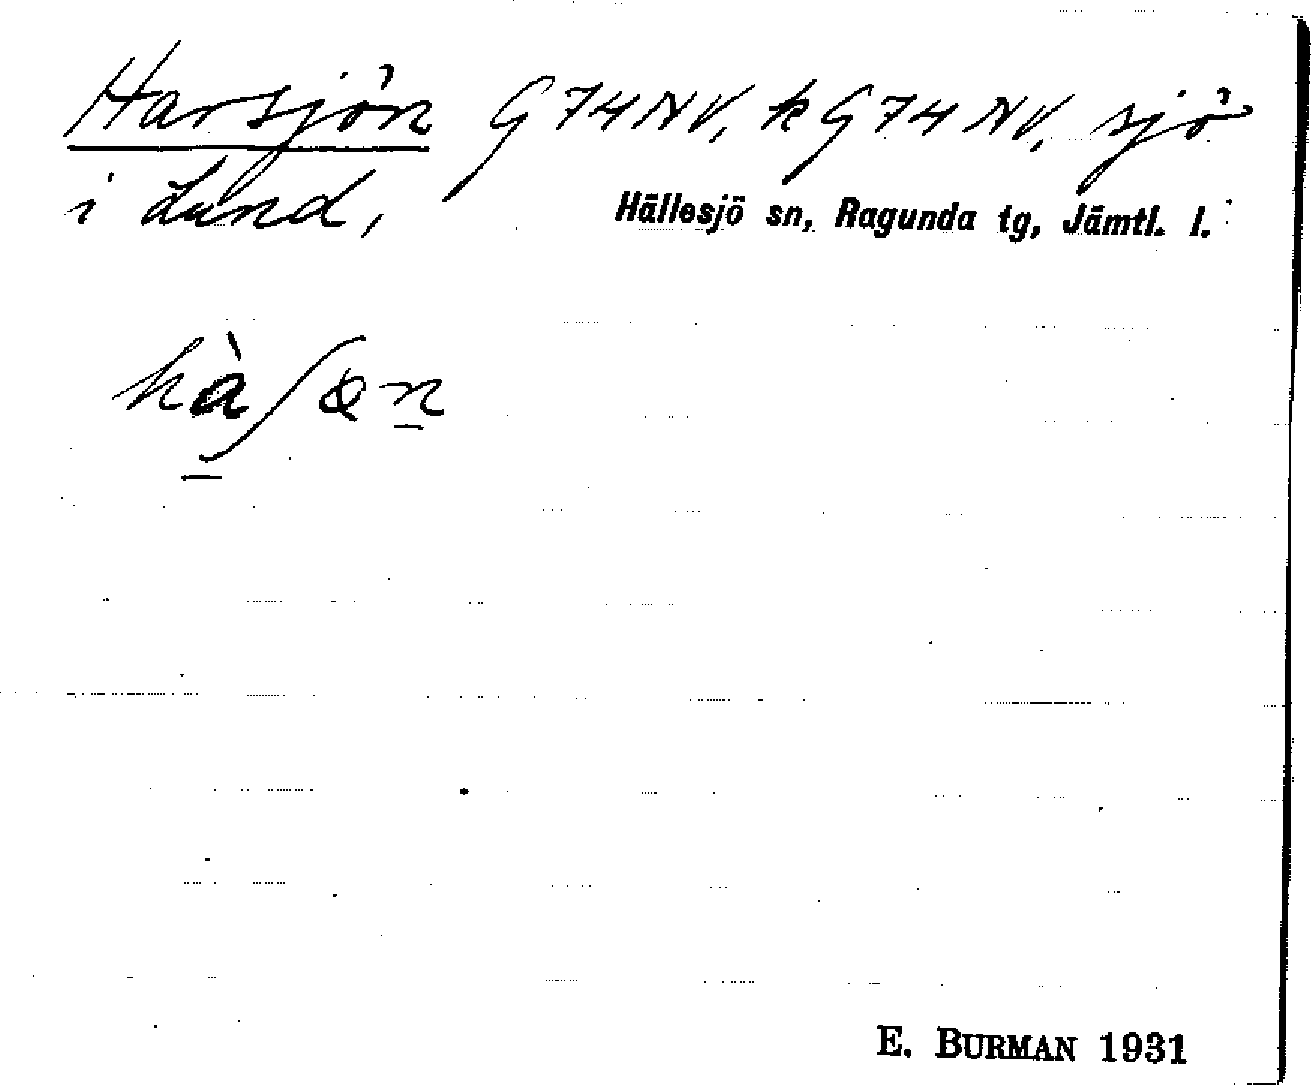 Harsjön G 74 NV, k G 74 NV, sjö
i Lund,
Hällesjö sn, Ragunda tg, Jämtl. l.
hàʃɵn
E. BURMAN 1931